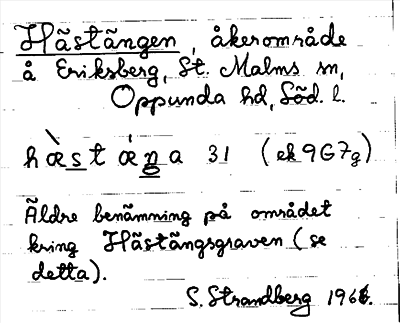 Hästängen, åkerområde
å Eriksberg, St. Malms sn,
Oppunda hd, Söd. l.
hæ̀stǽŋa 31 (ek 9G7g)
Äldre benämning på området
kring Hästängsgraven (se
detta).
S. Strandberg 1966.